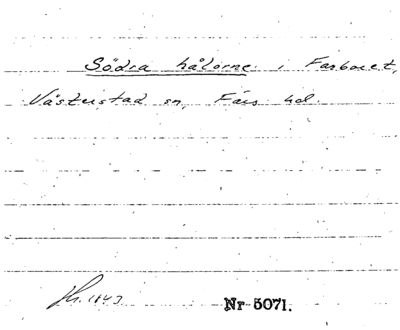 Södra hålorne i Farboret,
Västerstad sn, Färs hd.
1843
Nr 5071.